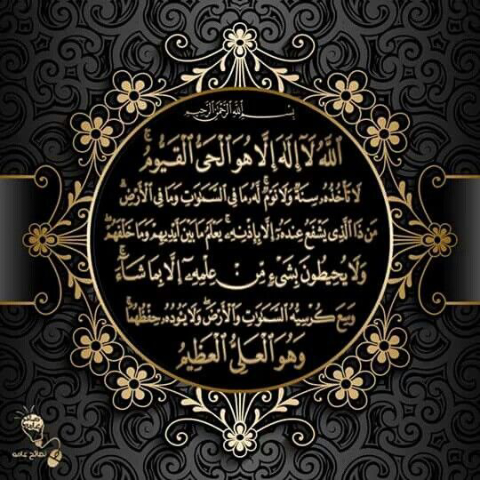 بِسْمِ ٱللَّهِ ٱلرَّحْمَٰنِ ٱلرَّحِيمِ
ٱللَّهُ لَآ إِلَٰهَ إِلَّا هُوَ ٱلْحَىُّ ٱلْقَيُّومُ ۚ
لَا تَأْخُذُهُۥ سِنَةٌ وَلَا نَوْمٌ ۚ لَّهُۥ مَا فِى ٱلسَّمَٰوَٰتِ وَمَا فِى ٱلْأَرْضِ ۗ
مَن ذَا ٱلَّذِى يَشْفَعُ عِندَهُۥٓ إِلَّا بِإِذْنِهِۦ ۚ يَعْلَمُ مَا بَيْنَ أَيْدِيهِمْ وَمَا خَلْفَهُمْ ۖ
وَلَا يُحِيطُونَ بِشَىْءٍ مِّنْ عِلْمِهِۦٓ إِلَّا بِمَا شَآءَ ۚ
وَسِعَ كُرْسِيُّهُ ٱلسَّمَٰوَٰتِ وَٱلْأَرْضَ ۖ وَلَا يَـُٔودُهُۥ حِفْظُهُمَا ۚ
وَهُوَ ٱلْعَلِىُّ ٱلْعَظِيمُ
نصائح عامه